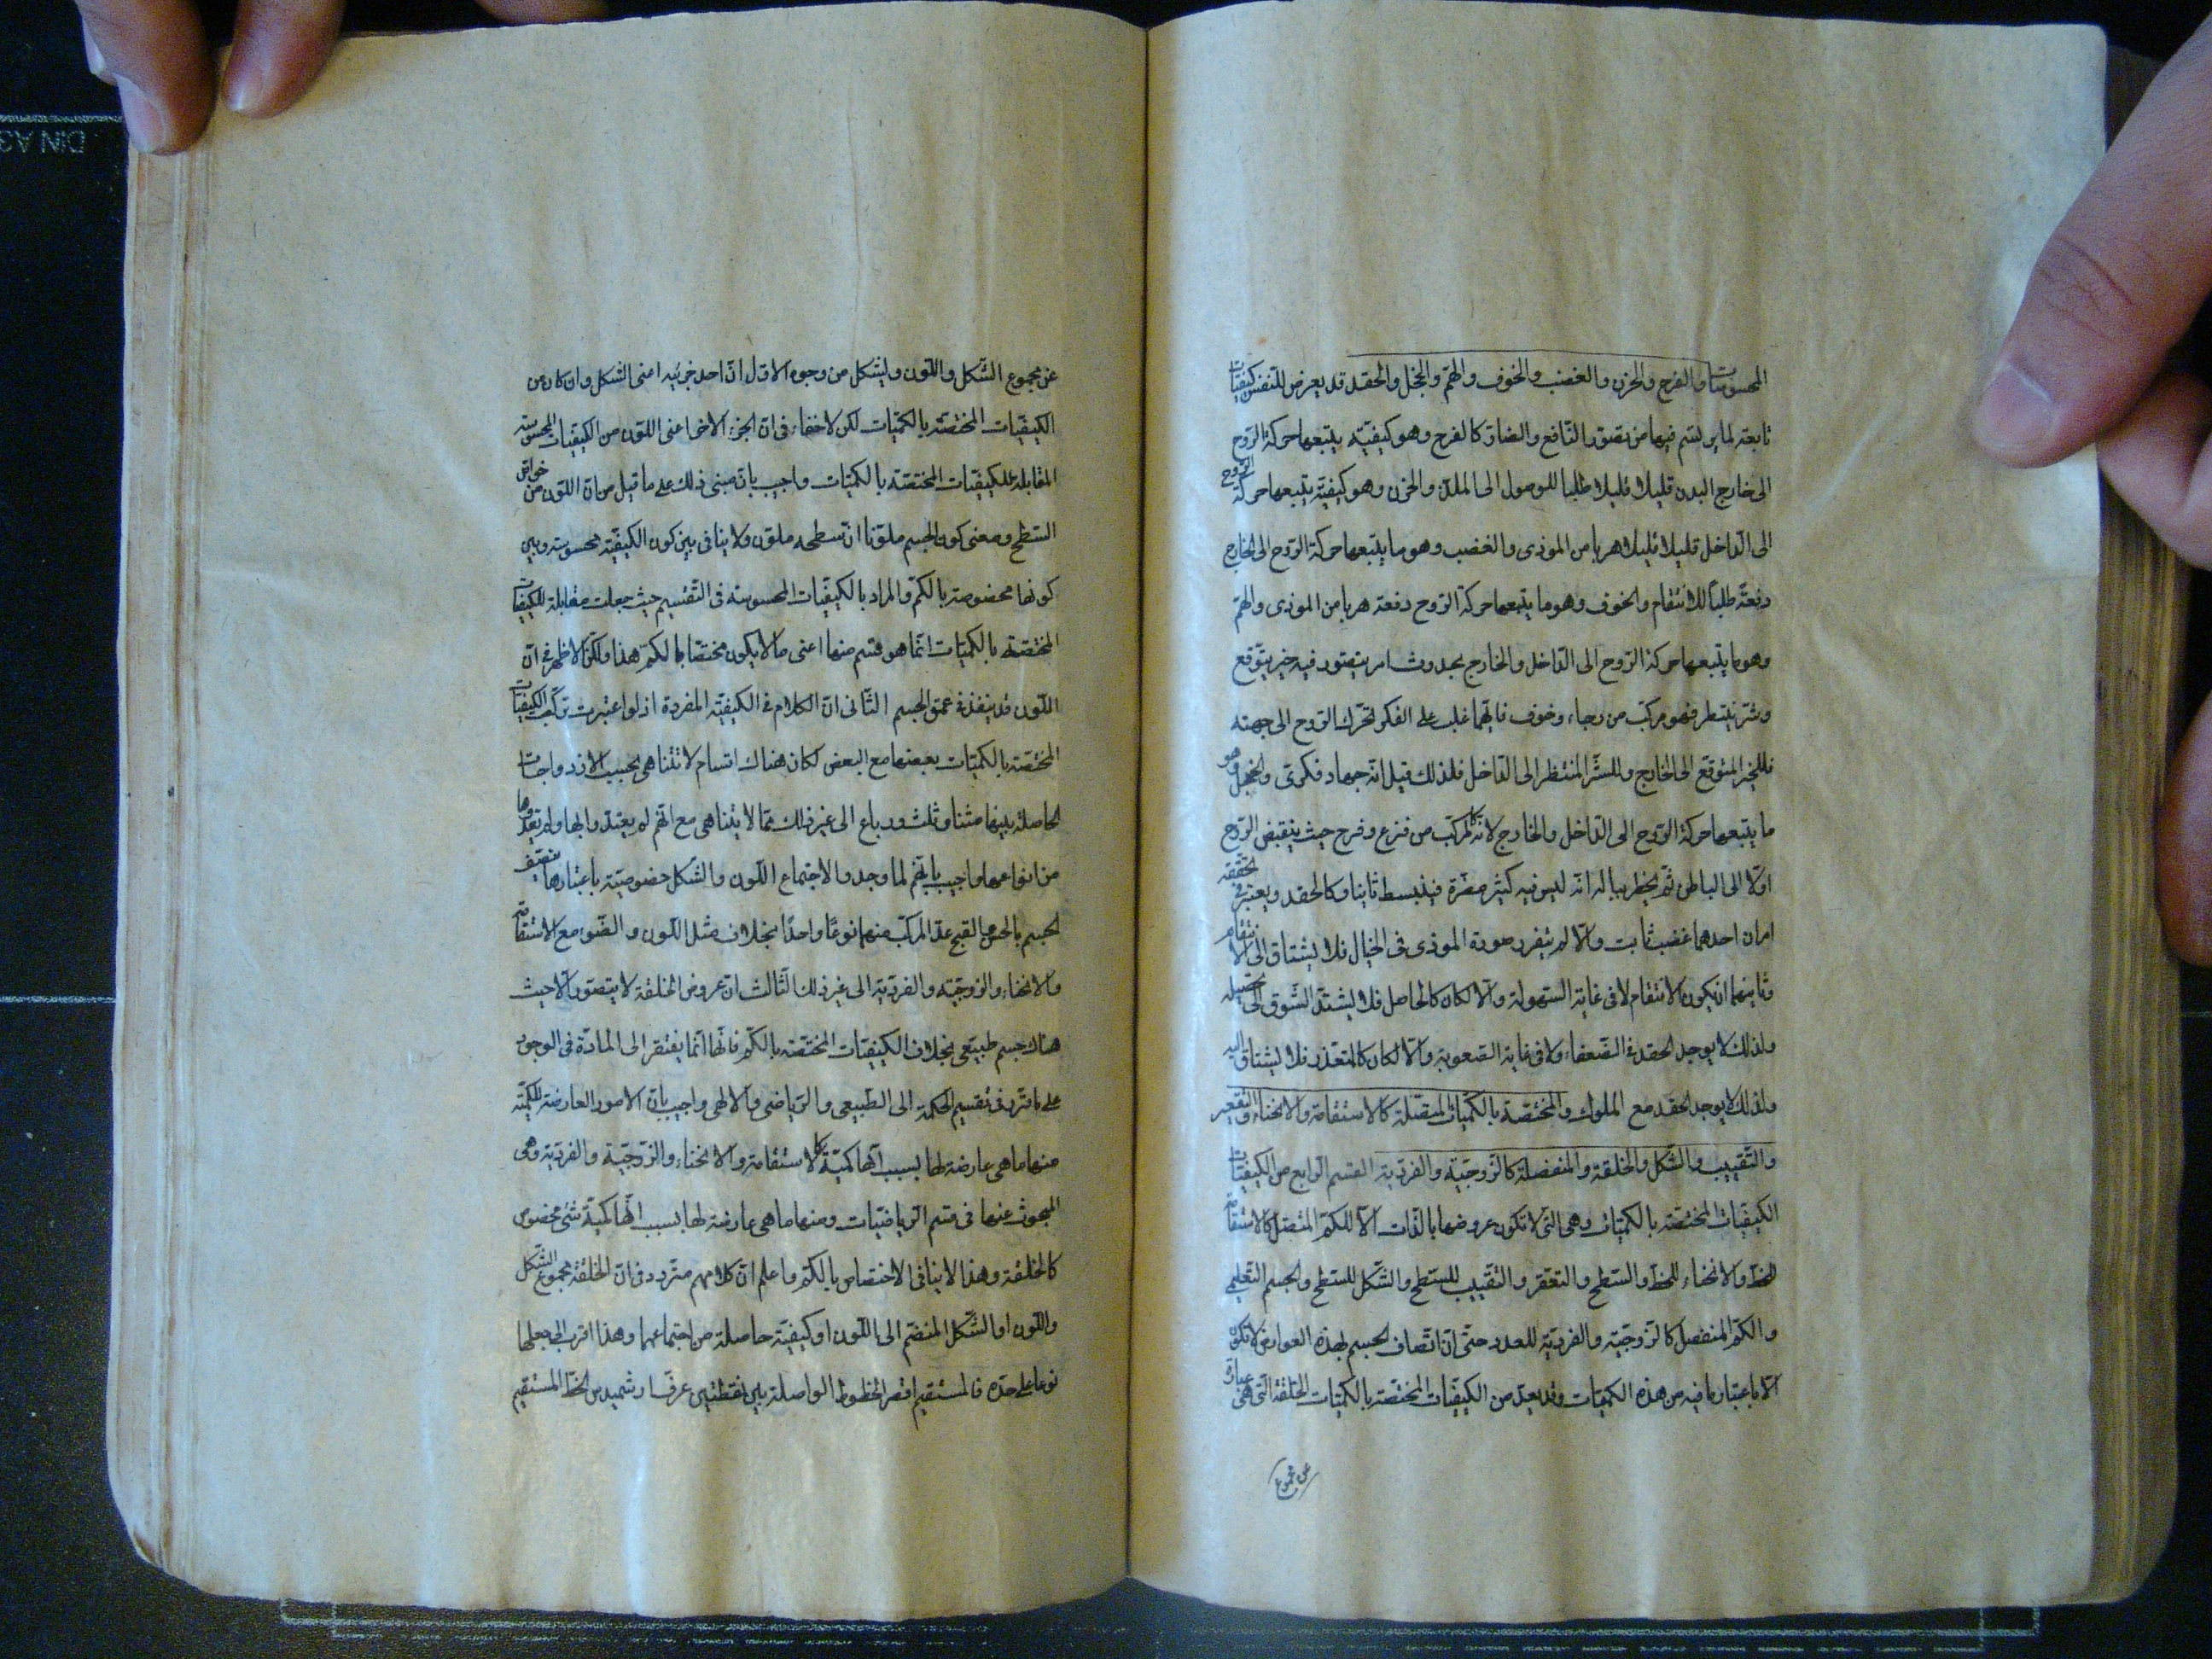 المحسوسات والفرح والحزن والغضب والخوف والهمّ والخجل والحقد قد يعرض للنفس كيفيّات
تابعة لما يرتسم فيها من تصوّر النّافع والضارّ كالفرح وهو كيفيّة يتبعها حركة الرّوح
الى خارج البدن قليلا قليلا طلبا للوصول الى الملذّ والحزن وهو كيفيّة يتبعها حركة الرّوح
الى الدّاخل قليلا قليلا هربا من الموذى والغضب وهو ما يتبعها حركة الرّوح الى الخارج
دفعة طلباً للانتقام والخوف وهو ما يتبعها حركة الرّوح دفعة هربا من الموذى والهمّ
وهو ما يتبعها حركة الرّوح الى الدّاخل والخارج بحدوث امر يتصوّر فيه خير يتوقّع
وشرّ ينتظر فهو مركّب من رجاء وخوف فايّهما غلب على الفكر تحرّك الرّوح الى جهته
فللخير المتوقّع الى الخارج وللشّرّ المنتظر الى الدّاخل فلذلك قيل انّه جهاد فكرىّ والخجل وهو
ما يتبعها حركة الرّوح الى الدّاخل والخارج لانّه كالمركّب من فزع وفرح حيث ينقبض الرّوح
اوّلا الى الباطن ثمّ يخطر بباله انّه ليس فيه كثير مضرّة فينبسط ثانيا وكالحقد ويعتبر فى تحقّقه
امران احدهما غضب ثابت والّا لم يتقرر صورة الموذى فى الخيال فلا يشتاق الى الانتقام
وثانيهما ان يكون الانتقام لا فى غاية السّهولة والّا لكان كالحاصل فلا يشتدّ الشّوق الى تحصيله
ولذلك لا يوجد الحقد فى الضّعفاء ولا فى غاية الصّعوبة والّا لكان كالمتعذّر فلا يشتاق اليه
ولذلك لا يوجد الحقد مع الملوك والمختصّة بالكمّيات المتّصلة كالاستقامة والانحناء والتقعير
والتّقبيب والشّكل والخلقة والمنفصلة كالزّوجيّة والفرديّة القسم الرّابع من الكيفيّات
الكيفيّات المختصّة بالكمّيات وهى التى لا تكون عروضها بالذّات الّا للكمّ المتّصل كالاستقامة
للخطّ والانحناء للخطّ والسّطح والتقعّر والتّقبيب للسّطح والشّكل للسّطح والجسم التّعليمى
والكمّ المنفصل كالزّوجيّة والفرديّة للعدد حتّى انّ اتّصاف الجسم بهذه العوارض لا تكون
الّا باعتبار ما فيه من هذه الكميّات وقد يعدّ من الكيفيّات المختصّة بالكمّيّات الخلقة الّتى هى عبارة
عن مجموع
عن مجموع الشّكل واللّون ويشكل من وجوه الاوّل انّ احد جزئيه اعنى الشّكل وان كان من
الكيفيّات المختصّة بالكمّيات لكن لا خفاء فى انّ الجزء الاخر اعنى اللّون من الكيفيّات المحسوسة
المقابلة للكيفيّات المختصّة بالكمّيات واجيب بانّ مبنى ذلك على ما قيل من انّ اللّون من خواصّ
السّطح ومعنى كون الجسم ملوّنا انّ سطحه ملوّن ولا ينافى بين كون الكيفيّة محسوسة وبين
كونها مخصوصة بالكمّ والمراد بالكيفيّات المحسوسة فى التّقسيم حيث جعلت مقابلة للكيفيّات
المختصّة بالكميّات انّما هو قسم منها اعنى ما لا يكون مختصّا بالكمّ هذا ولكنّ الاظهر فى انّ
اللّون قد ينفذ فى عمق الجسم الثّانى انّ الكلام فى الكيفيّة المفردة اذ لو اعتبرت تركّب الكيفيّات
المختصّة بالكميّات بعضها مع البعض لكان هناك اقسام لا تتناهى بحسب الازدواجات
الحاصلة بينها مثنا وثلث ورباع الى غير ذلك ممّا لا يتناهى مع انّهم لم يعتدّوا بها ولم يعدّوها
من انواعها واجيب بانّهم لما وجدوا لاجتماع اللّون والشّكل خصوصيّة باعتبارها يتّصف
الجسم بالحسن والقبح عدّ المركّب منهما نوعًا واحدًا بخلاف مثل اللّون والضّوء مع الاستقامة
والانحناء والزوجيّة والفرديّة الى غير ذلك الثّالث انّ عروض الخلقة لا يتصوّر الّا حيث
هناك جسم طبيعى بخلاف الكيفيّات المختصّة بالكمّ فانّها انّما يفتقر الى المادّة فى الوجود
على ما قرّر فى تقسيم الحكمة الى الطّبيعى والرّياضى والالهى واجيب بانّ الامور العارضة للكميّة
منها ما هى عارضة لها بسبب انّها كميّة كالاستقامة والانحناء والزّوجيّة والفرديّة وهى
المبحوث عنها فى قسم الرّياضيّات ومنها ما هى عارضة لها بسبب انّها كميّة شئ مخصوص
كالخلقة وهذا لا ينافى الاختصاص بالكمّ واعلم انّ كلامهم متردّد فى انّ الخلقة مجموع الشّكل
واللّون او الشّكل المنضمّ الى اللّون او كيفيّة حاصلة من اجتماعهما وهذا اقرب الى جعلها
نوعا على حدّه فالمستقيم اقصر الخطوط الواصلة بين نقطتين عرّف ارشميدس الخطّ المستقيم